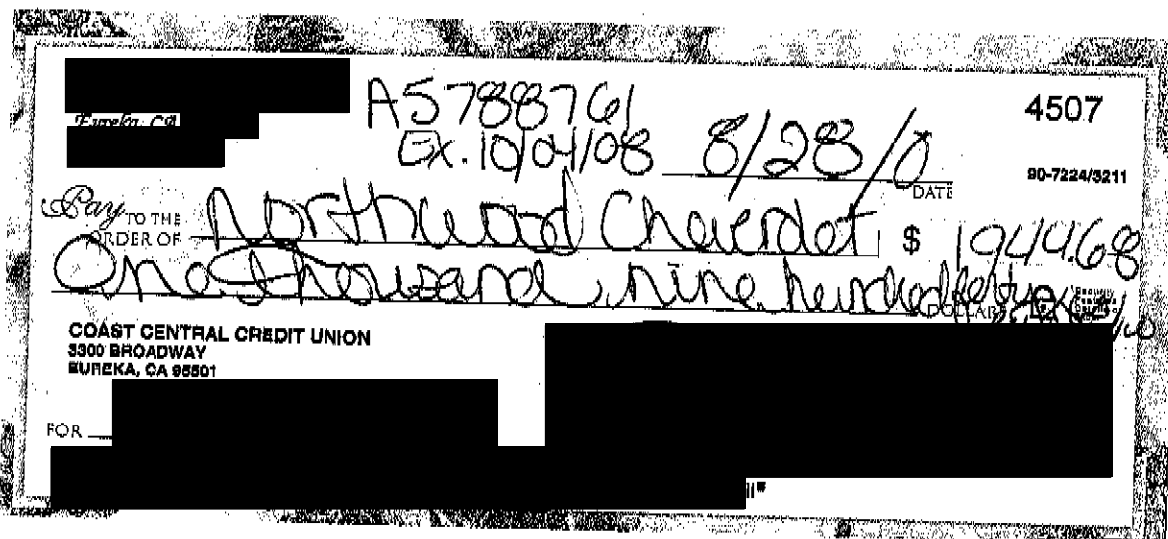 Eureka, CA
A5788761
Ex. 10/04/08
8/28/0
4507
DATE
90-7224/3211
Pay TO THE ORDER OF Northwood Cheverolet $ 1944.68
One thousand nine hundred forty
DOLLARS
COAST CENTRAL CREDIT UNION
3300 BROADWAY
EUREKA, CA 95501
FOR